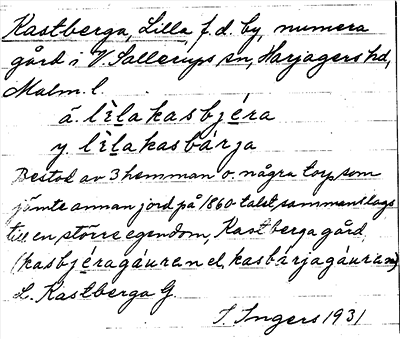 Kastberga, Lilla, f. d. by, numera
gård i V. Sallerups sn, Harjagers hd,
Malm. l.
ä. lìlakasbjéra
y. lìlakasbárja
Bestod av 3 hemman o. några torp, som
jämte annan jord på 1860 talet sammanslogs
till en större egendom, Kastberga gård,
(kasbjéragáuran el, kasbárjagáuran)
L. Kastberga G.
I. Ingers 1931